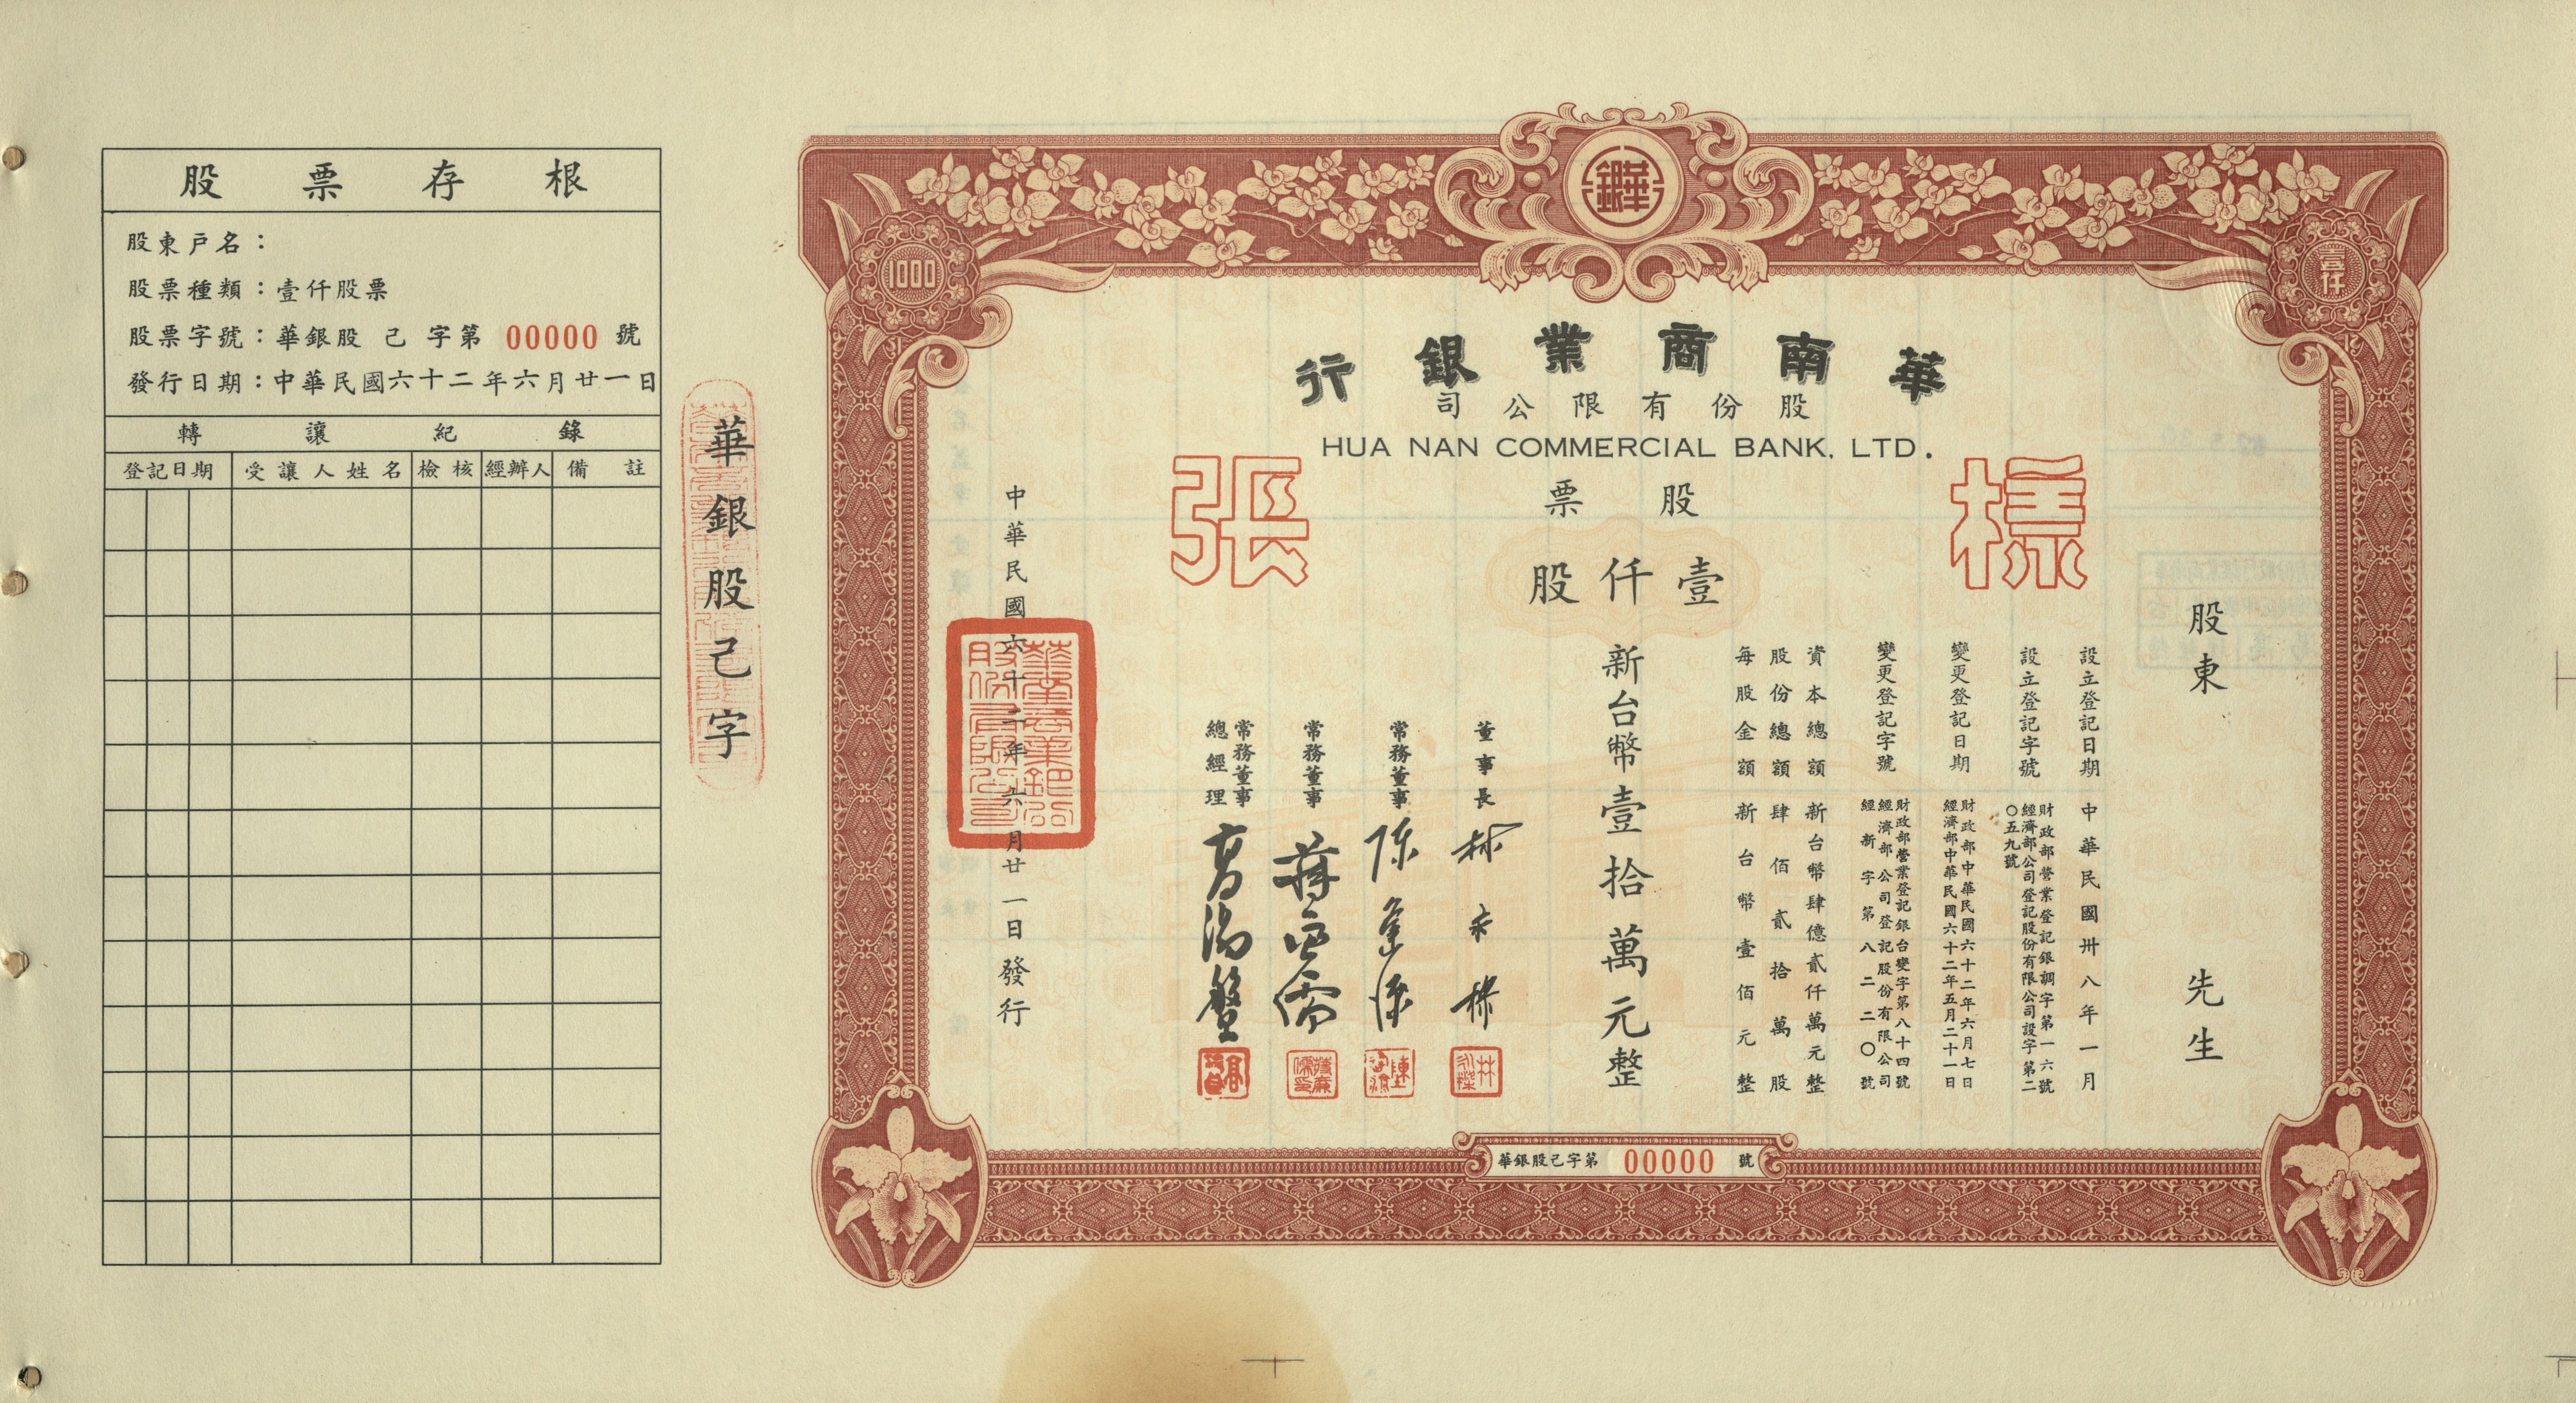 股票存根
股東戶名：
股票種類：壹仟股票
股票字號：華銀股 己 字第 00000 號
發行日期：中華民國六十二年六月廿一日
轉讓紀錄
登記日期 受讓人姓名 檢核 經辦人 備註
華銀股己字
1000
華銀
壹仟
華南商業銀行
股份有限公司
HUA NAN COMMERCIAL BANK, LTD.
樣張
股票
壹仟股
股東 先生
設立登記日期 中華民國卅八年一月
設立登記字號 財政部營業登記銀調字第一六號
經濟部公司登記股份有限公司設字第二
〇五九號
變更登記日期 財政部中華民國六十二年六月七日
經濟部中華民國六十二年五月二十一日
變更登記字號 財政部營業登記銀台變字第八十四號
經濟部公司登記股份有限公司
經新字第八二二〇號
資本總額 新台幣肆億貳仟萬元整
股份總額 肆佰貳拾萬股
每股金額 新台幣壹佰元整
新台幣壹拾萬元整
董事長
常務董事
常務董事
常務董事
總經理
中華民國六十二年六月廿一日發行
華銀股己字第 00000 號